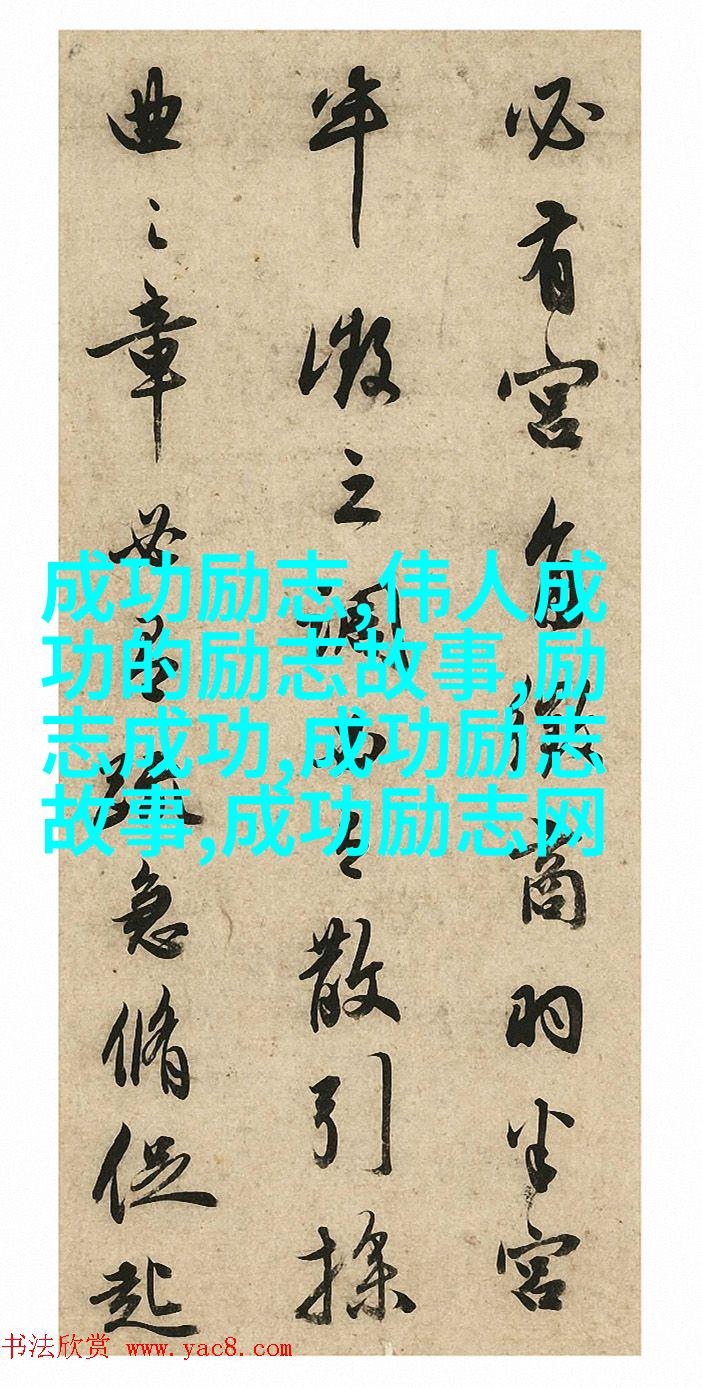 必有宫角徵商羽半宫
半徵之調之散引操
曲之章疏急脩促起
成功励志,伟人成
功的励志故事,励
志成功,成功励志
故事,成功励志网
书法欣赏 www.yac8.com